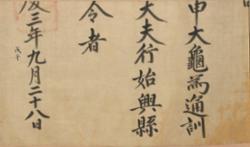 申大龜為通訓
大夫行始興縣
令者
慶三年九月二十八日
戊午